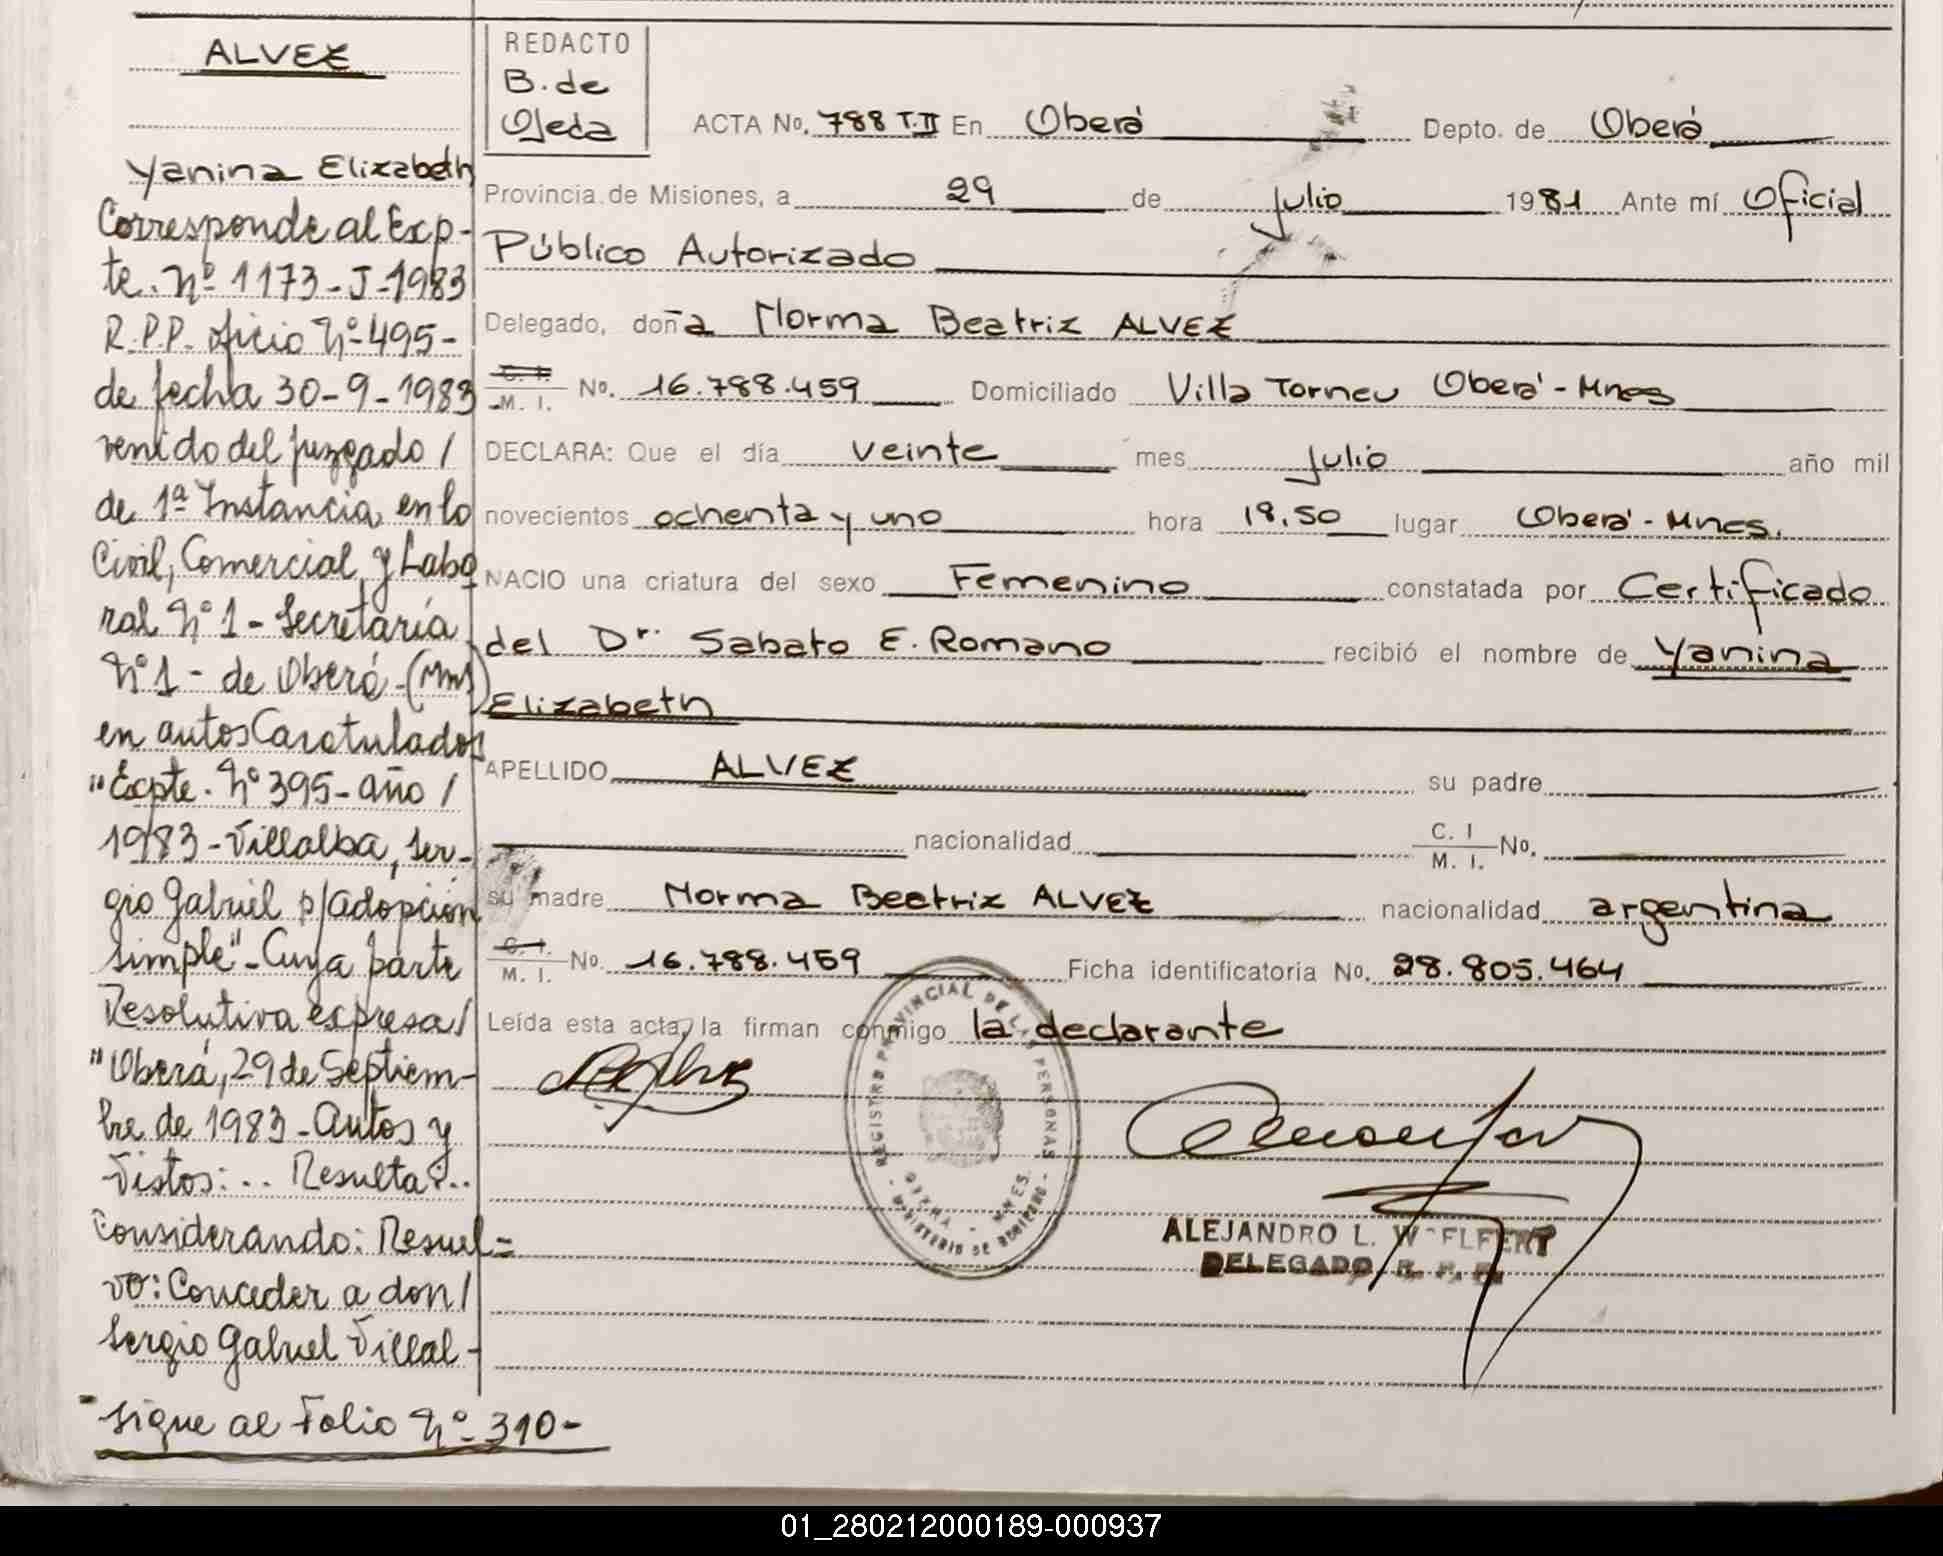 ALVEZ
Yanina Elizabeth
Corresponde al Exp-
te. Nº 1173-J-1983
R.P.P. oficio Nº 495-
de fecha 30-9-1983
venido del juzgado /
de 1ª Instancia en lo
Civil, Comercial, y Labo
ral Nº 1 - Secretaría
Nº 1 - de Oberá - (Mns)
en autos Caratulados
"Expte. Nº 395 - año /
1983 - Villalba, Ser-
gio Gabriel p/Adopción
simple" - Cuya parte
Resolutiva expresa /
"Oberá, 29 de Septiem-
bre de 1983 - Autos y
Vistos: .. Resulta: ..
Considerando: Resuel-
vo: Conceder a don /
Sergio Gabriel Villal-
"sigue al Folio Nº 310-
REDACTO
B. de
Ojeda
ACTA No. 788 T.II En Oberá Depto. de Oberá
Provincia de Misiones, a 29 de julio 1981 Ante mí Oficial
Público Autorizado
Delegado, doña Norma Beatriz ALVEZ
C. I.
M. I. No. 16.788.459 Domiciliado Villa Torneu Oberá - Mnes
DECLARA: Que el día veinte mes julio año mil
novecientos ochenta y uno hora 18,50 lugar Oberá - Mnes.
NACIO una criatura del sexo Femenino constatada por Certificado
del Dr. Sabato E. Romano recibió el nombre de Yanina
Elizabeth
APELLIDO ALVEZ su padre
nacionalidad C. I M. I. No.
su madre Norma Beatriz ALVEZ nacionalidad argentina
C. I.
M. I. No. 16.788.459 Ficha identificatoria No. 28.805.464
Leída esta acta, la firman conmigo la declarante
REGISTRO PROVINCIAL DE LAS PERSONAS
OBERA - MNES.
- MINISTERIO DE GOBIERNO -
ALEJANDRO L. WOELFERT
DELEGADO R. P. P.
01_280212000189-000937